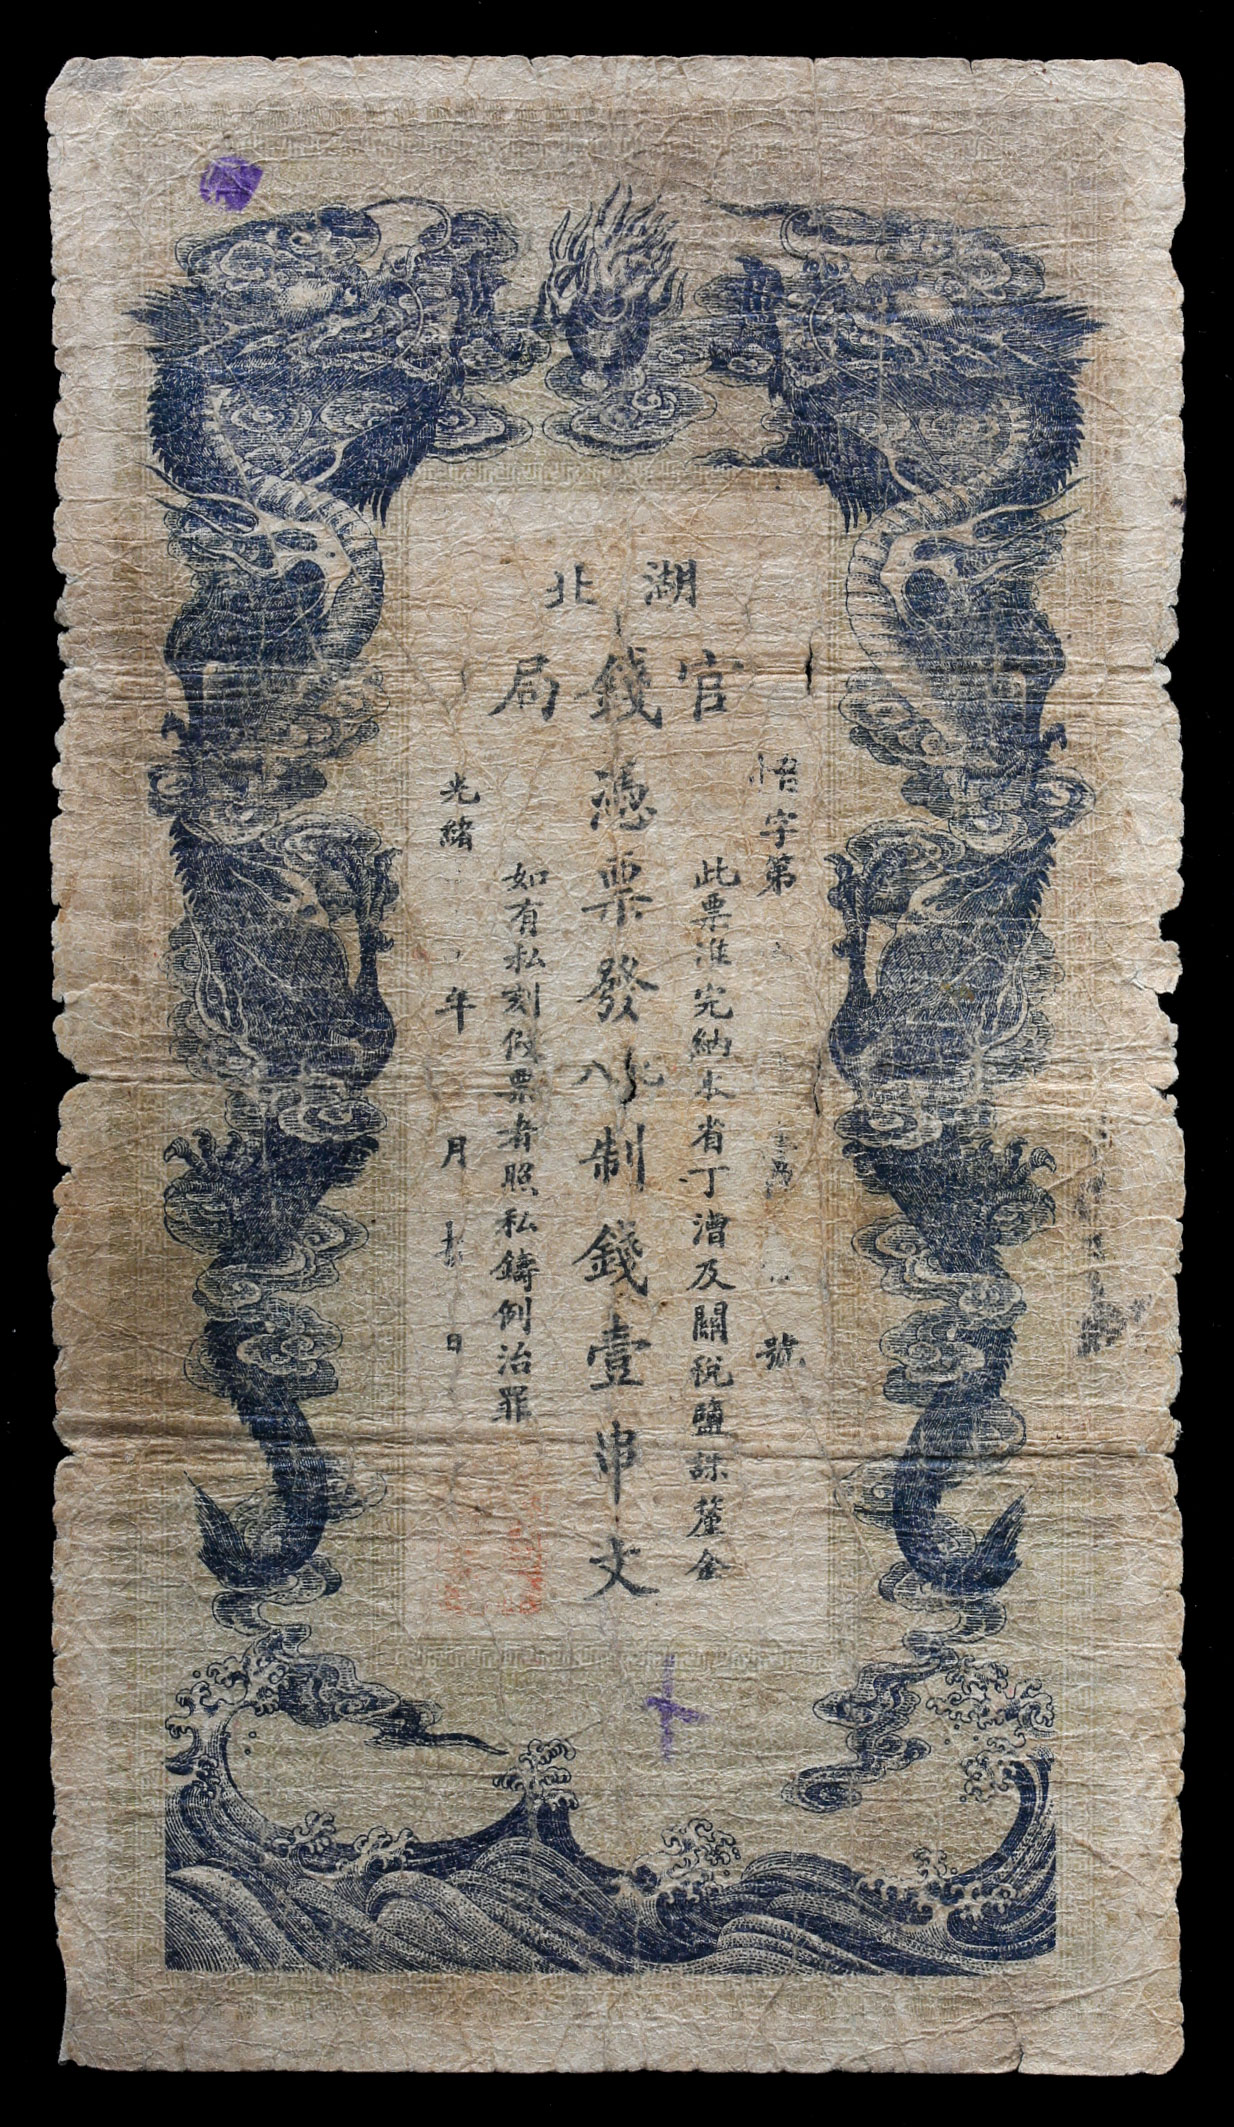 湖北
官錢局
悟字第 號
此票准完納本省丁漕及關稅鹽課釐金
憑票發九八制錢壹串文
如有私刻假票者照私鑄例治罪
光緒 年 月 日